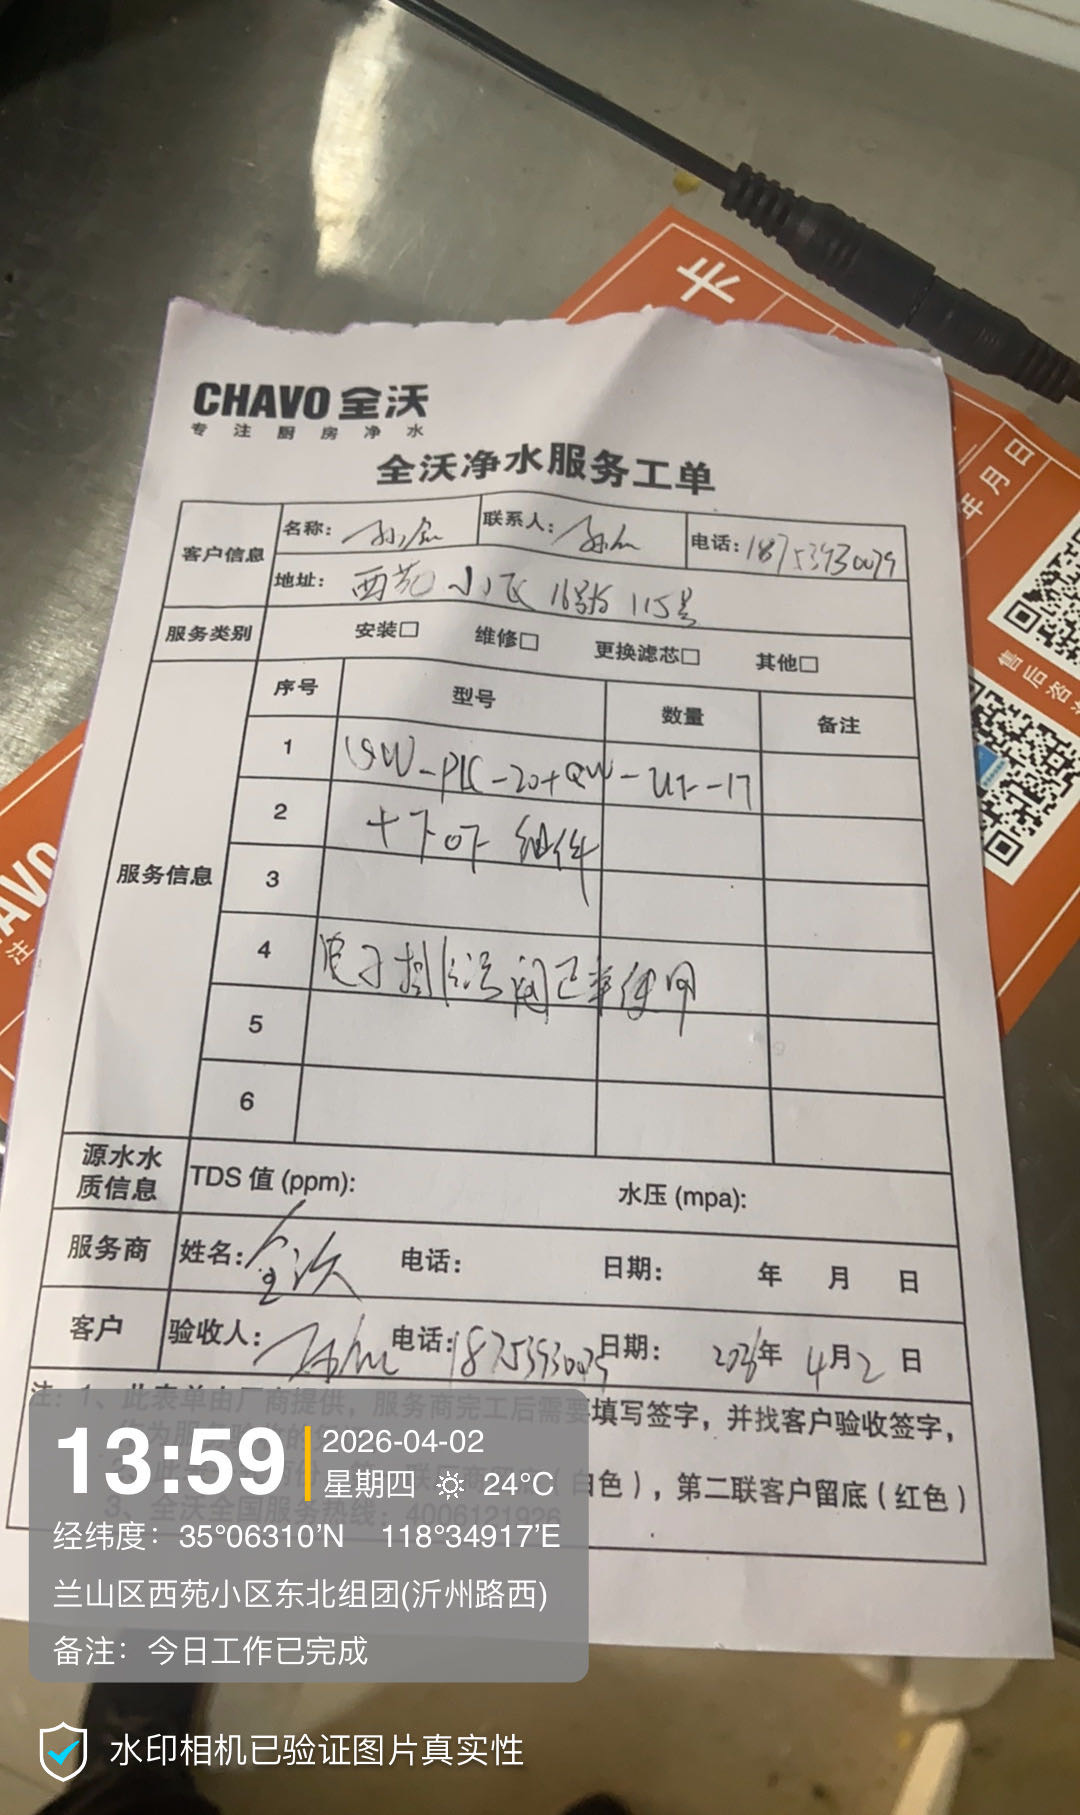 CHAVO 全沃
专注厨房净水
全沃净水服务工单
客户信息 名称: 联系人: 电话: 18753930079
地址: 西苑小区 16号 115号
服务类别 安装□ 维修□ 更换滤芯□ 其他□
服务信息 序号 型号 数量 备注
1 QW-PLC-20+QW-UF-17
2 组件
3
4 电子 阀已 使用
5
6
源水水质信息 TDS 值 (ppm): 水压 (mpa):
服务商 姓名: 全沃 电话: 日期: 年 月 日
客户 验收人: 电话: 18753930079 日期: 2026年 4月2日
注: 1、此表单由厂商提供，服务商完工后需要填写签字，并找客户验收签字，
白色），第二联客户留底（红色）
3、全沃全国服务热线：
年月日
售后咨
AVO
注
13:59
2026-04-02
星期四 24°C
经纬度：35°06310'N 118°34917'E
兰山区西苑小区东北组团(沂州路西)
备注：今日工作已完成
水印相机已验证图片真实性